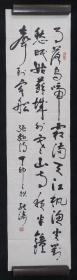 月落乌啼霜满天江枫渔火对
愁眠姑苏城外寒山寺夜半钟
声到客船 张继诗 丁卯秋